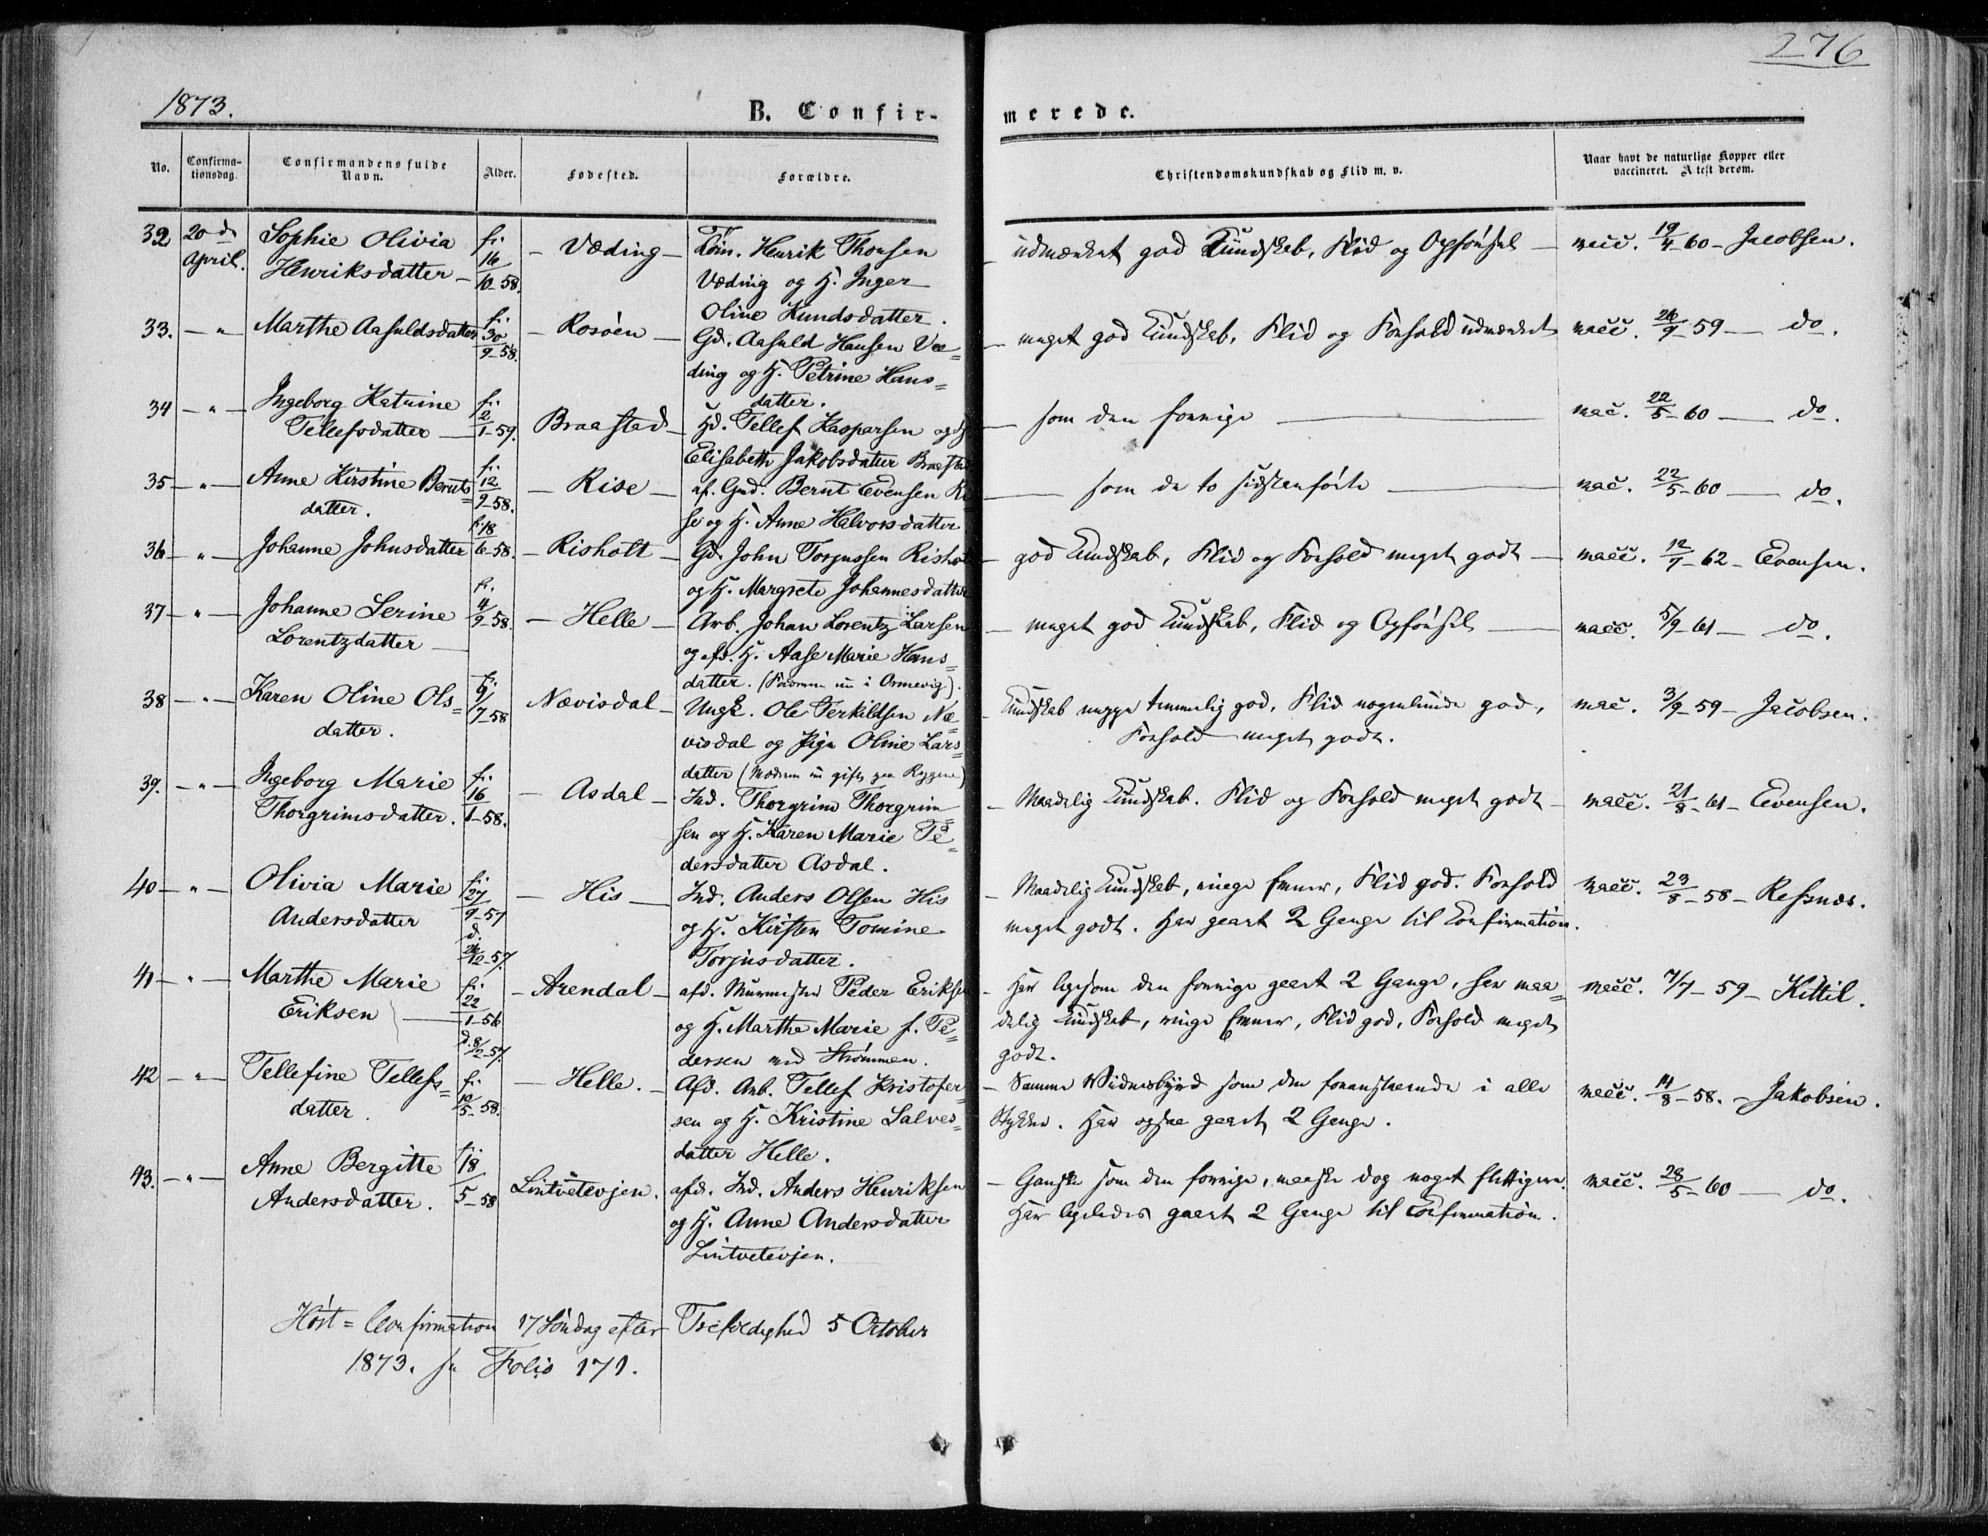 276
1873.
B. Confirmerede.
No.
Confirmationsdag.
Confirmandens fulde Navn.
Alder.
Fødested.
Forældre.
Christendomskundskab og Flid m. v.
Naar havt de naturlige Kopper eller vaccineret. Attest derom.
32 20de April. Sophie Olivia Henriksdatter – f. 16/10-58. – Væding – Henrik Thorsen
Væding og H. Inger
Oline Knudsdatter.
udmærket god Kundskab, Flid og Opførsel – vacc. 19/4-60 – Jacobsen.
33. – " – Marthe Aasuldsdatter f. 30/9-58. – Rosøen – Gd. Aasuld Hansen Væ=
ding og H. Petrine Hans=
datter.
– meget god Kundskab, Flid og Forhold udmærket vacc. 26/9-59 – do.
34 – " – Ingeborg Katrine Tellefsdatter – f. 2/1-59. Braastad – Gd. Tellef Kasparsen og H.
Elisabeth Jakobsdatter Braastad
– som den forrige – vac. 22/5-60 – do.
35 – " – Anne Kirstine Bernts=
datter. f. 12/9-58. – Rise – af. Gmd. Bernt Evensen Ri
se og H. Anne Halvorsdatter
– som de to sidstanførte – vac. 22/5-60 – do.
36 – " – Johanne Johnsdatter f. 18/6-58. – Risholt – Gd. John Torjussen Risholt
og H. Margrete Johannesdatter
– god Kundskab, Flid og Forhold meget godt – vacc. 12/7-62 – Evensen.
37 – " – Johanne Serine
Lorentzdatter – f. 4/9-58. – Helle – Arb. Johan Lorentz Larsen
og afd. H. Aase Marie Hans=
datter. (Faderen nu i Ormevig).
– meget god Kundskab, Flid og Opførsel – vacc. 5/9-61 – do.
38 – " – Karen Oline Ols=
datter. f. 9/7-58 Nævisdal – Ungk. Ole Terkildsen Næ
visdal og Pige Oline Lars=
datter (Moderen nu gift paa Ryggene)
– Kundskab neppe temmelig god, Flid nogenlunde god,
Forhold meget godt.
vac. 3/9-59 – Jacobsen.
39. – " – Ingeborg Marie
Thorgrimsdatter. f. 16/1-58. – Asdal – Ind. Thorgrim Thorgrim
sen og H. Karen Marie Pe=
dersdatter Asdal.
– Maadelig Kundskab. Flid og Forhold meget godt – vacc. 21/8-61 – Evensen.
40 – " – Olivia Marie
Andersdatter f. 27/9-57 d. 26/12-57. – His – Ind. Anders Olsen His
og H. Kirsten Tomine
Torjusdatter.
– Maadelig Kundskab, ringe Evner, Flid god. Forhold
meget godt. Har gaaet 2 Gange til Confirmation.
vacc. 23/8-58 – Refsnæs.
41 – " – Marthe Marie
Eriksen – f. 22/1-56 d. 8/2-57. – Arendal – afd. Murmester Peder Eriksen
og H. Marthe Marie f. Pe=
dersen ved Strømmen.
– Har ligesom den forrige gaaet 2 Gange, har maa=
delig Kundskab, ringe Evner, Flid god, Forhold meget
godt.
vacc. 7/7-59 – Kittil.
42 – " – Tellefine Tellefs=
datter. f. 10/5-58. – Helle. – Afd. Arb. Tellef Kristofer=
sen og H. Kristine Salves=
datter Helle.
– Samme Vidnesbyrd som den foranstaaende i alle
Stykker. Har ogsaa gaaet 2 Gange.
vacc. 14/8-58. – Jakobsen.
43. – " – Anne Bergitte
Andersdatter. f. 18/5-58 Lintvetevjen. afd. Ind. Anders Henriksen
og H. Anne Andersdatter
Lintvetevjen.
– Ganske som den forrige, maaske dog noget flittigere.
Har ligeledes gaaet 2 Gange til Confirmation.
vacc. 28/5-60 – do.
Høst=Confirmation 17 Søndag efter Trefoldighed 5 October
1873. se Folio 171.